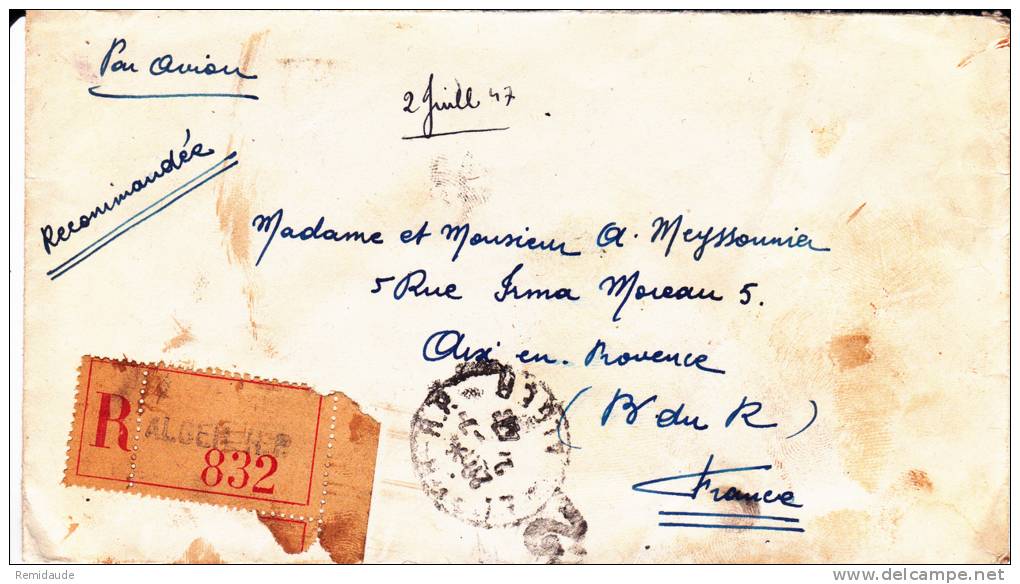 Par Avion
2 Juill 47
Recommandée
Madame et Monsieur A. Meyssonnier
5 Rue Irma Moreau 5.
Aix en-Provence
(Bᵈ du R)
France
R
ALGER
832
ALGER R.P.
Remidaude
delcampe.net